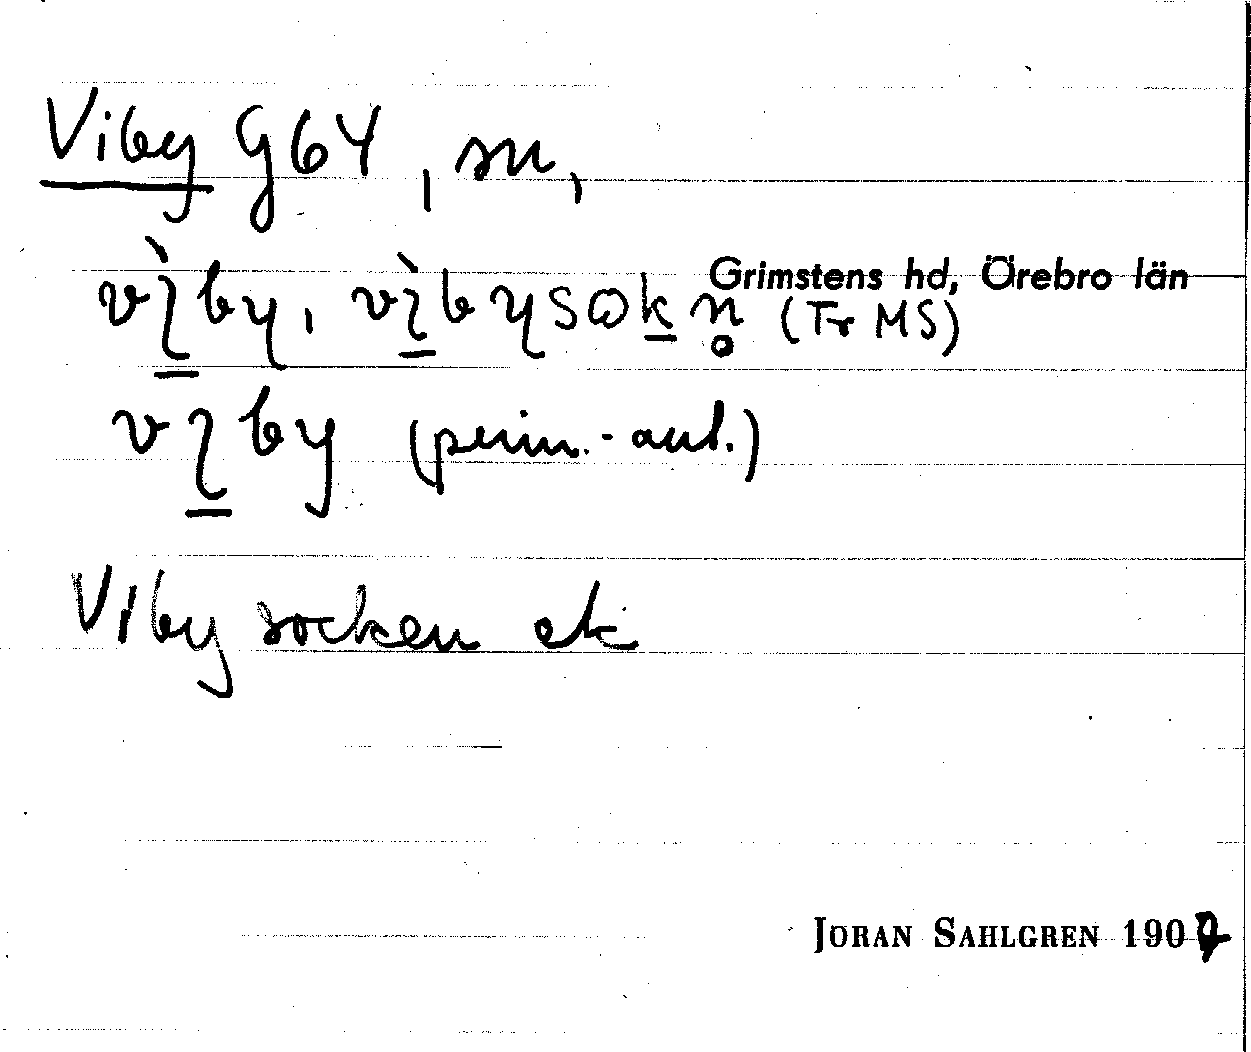 Viby G64, sn,
Grimstens hd, Örebro län
vìby, vìbysωkn̥ (Tr MS)
viby (perm.-ant.)
Viby socken ek
JÖRAN SAHLGREN 1907